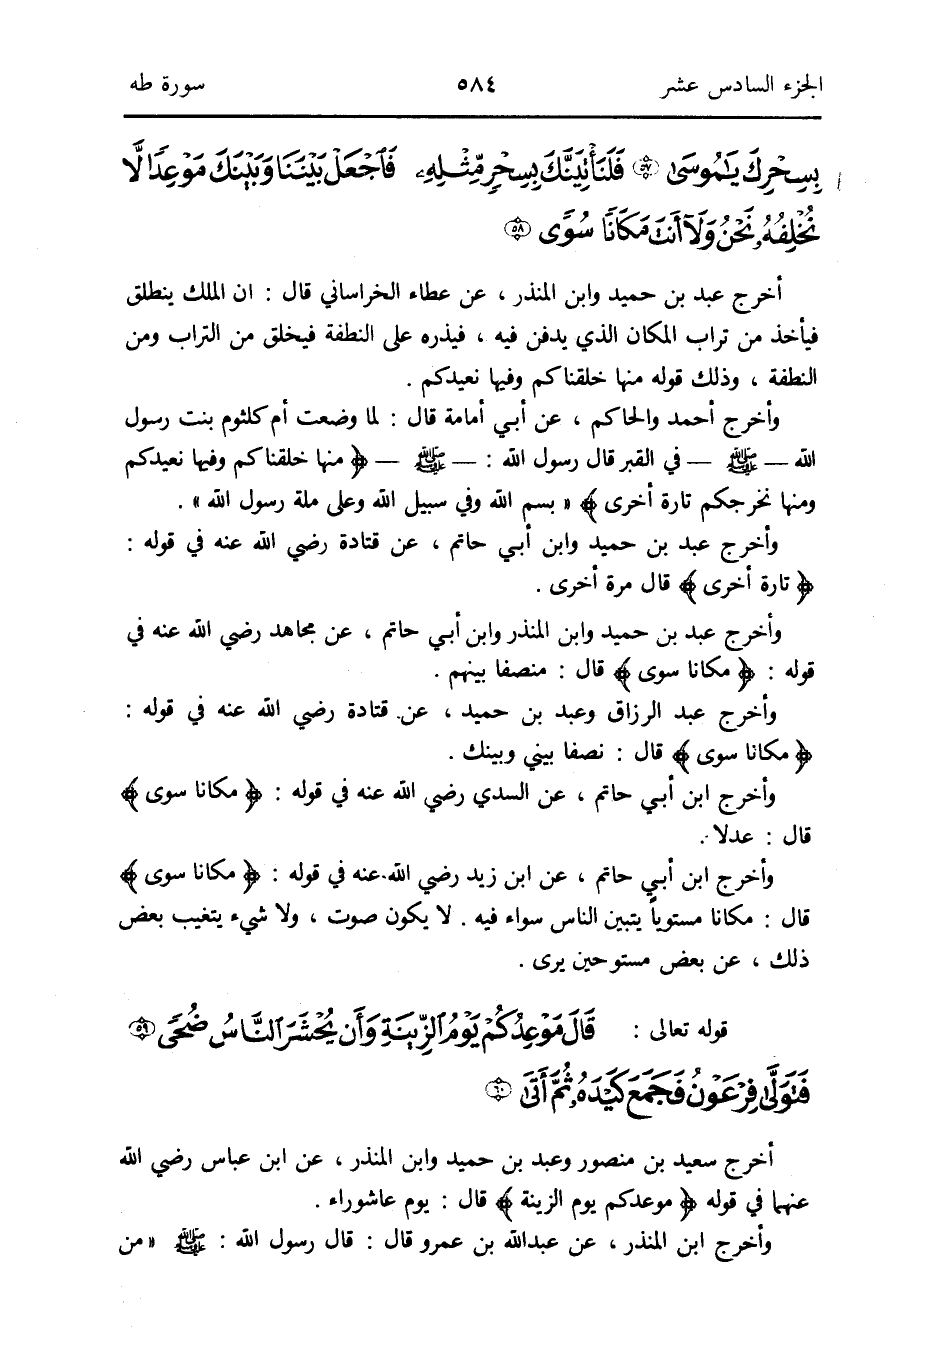 الجزء السادس عشر ٥٨٤ سورة طه
بِسِحْرِكَ يَٰمُوسَىٰ ٥٧ فَلَنَأْتِيَنَّكَ بِسِحْرٍ مِّثْلِهِۦ فَٱجْعَلْ بَيْنَنَا وَبَيْنَكَ مَوْعِدًا لَّا
نُخْلِفُهُۥ نَحْنُ وَلَآ أَنتَ مَكَانًا سُوًى ٥٨
أخرج عبد بن حميد وابن المنذر ، عن عطاء الخراساني قال : ان الملك ينطلق
فيأخذ من تراب المكان الذي يدفن فيه ، فيذره على النطفة فيخلق من التراب ومن
النطفة ، وذلك قوله منها خلقناكم وفيها نعيدكم .
وأخرج أحمد والحاكم ، عن أبي أمامة قال : لما وضعت أم كلثوم بنت رسول
الله — ﷺ — في القبر قال رسول الله : — ﷺ — ﴿ منها خلقناكم وفيها نعيدكم
ومنها نخرجكم تارة أخرى ﴾ « بسم الله وفي سبيل الله وعلى ملة رسول الله » .
وأخرج عبد بن حميد وابن أبي حاتم ، عن قتادة رضي الله عنه في قوله :
﴿ تارة أخرى ﴾ قال مرة أخرى .
وأخرج عبد بن حميد وابن المنذر وابن أبي حاتم ، عن مجاهد رضي الله عنه في
قوله : ﴿ مكانا سوى ﴾ قال : منصفا بينهم .
وأخرج عبد الرزاق وعبد بن حميد ، عن قتادة رضي الله عنه في قوله :
﴿ مكانا سوى ﴾ قال : نصفا بيني وبينك .
وأخرج ابن أبي حاتم ، عن السدي رضي الله عنه في قوله : ﴿ مكانا سوى ﴾
قال : عدلا .
وأخرج ابن أبي حاتم ، عن ابن زيد رضي الله عنه في قوله : ﴿ مكانا سوى ﴾
قال : مكانا مستوياً يتبين الناس سواء فيه . لا يكون صوت ، ولا شيء يتغيب بعض
ذلك ، عن بعض مستوحين يرى .
قوله تعالى : قَالَ مَوْعِدُكُمْ يَوْمُ ٱلزِّينَةِ وَأَن يُحْشَرَ ٱلنَّاسُ ضُحًى ٥٩
فَتَوَلَّىٰ فِرْعَوْنُ فَجَمَعَ كَيْدَهُۥ ثُمَّ أَتَىٰ ٦٠
أخرج سعيد بن منصور وعبد بن حميد وابن المنذر ، عن ابن عباس رضي الله
عنهما في قوله ﴿ موعدكم يوم الزينة ﴾ قال : يوم عاشوراء .
وأخرج ابن المنذر ، عن عبدالله بن عمرو قال : قال رسول الله : ﷺ « من